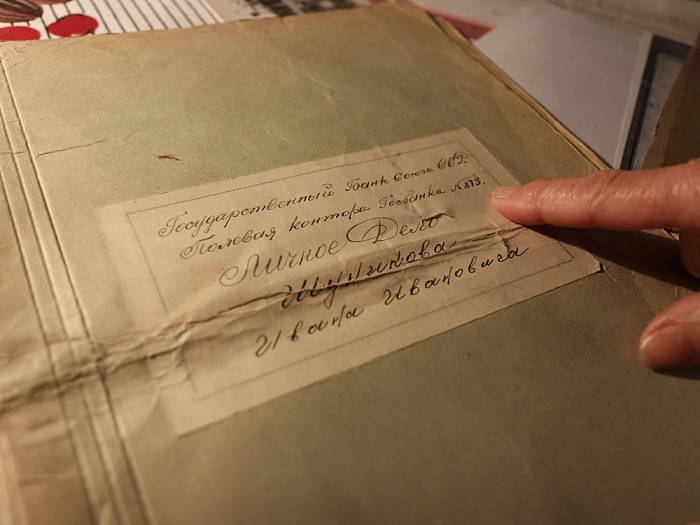 Государственный Банк Союза ССР.
Полевая контора Госбанка № 873.
Личное Дело
Шуликова
Ивана Ивановича